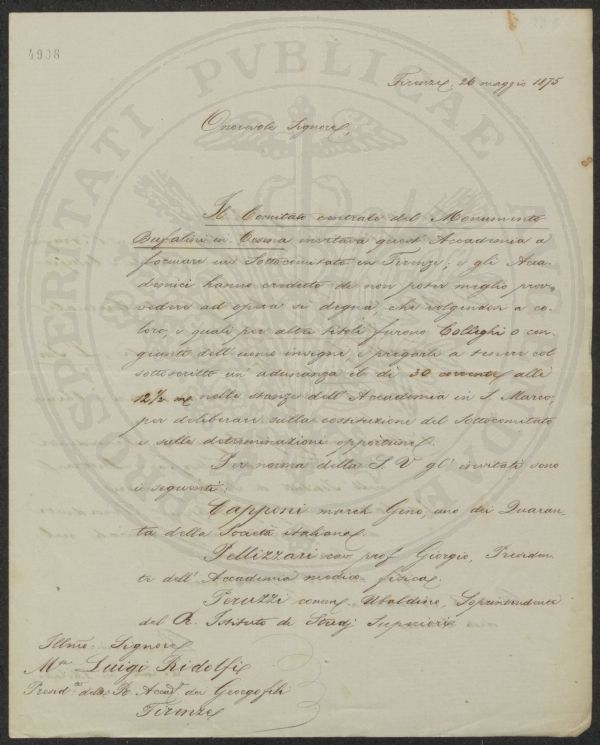 4908
PROSPERITATI PUBLICAE AUGENDAE
Firenze, 26 maggio 1875
Onorevole Signore,
Il Comitato centrale del Monumento
Bufalini in Cesena invitava quest'Accademia a
formare un Sottocomitato in Firenze; e gli Acca-
demici hanno creduto di non poter meglio prov-
vedere ad opera sì degna, che volgendosi a co-
loro, i quali per altri titoli furono Colleghi o con-
giunti dell'uomo insigne, e pregarli a tenere col
sottoscritto un'adunanza il dì 30 corrente, alle
12½ nelle stanze dell'Accademia in S. Marco,
per deliberare sulla costituzione del Sottocomitato
e sulle determinazioni opportune.
Per norma della S. V. gl'invitati sono
i seguenti:
Capponi march. Gino, uno dei Quaran-
ta della Società italiana,
Pellizzari cav. prof. Giorgio, Presiden-
te dell'Accademia medico fisica,
Peruzzi comm. Ubaldino, Soprintendente
del R. Istituto di Studj Superiori
Illmo. Signore
Mse. Luigi Ridolfi
Presid.te della R. Accad. dei Georgofili
Firenze